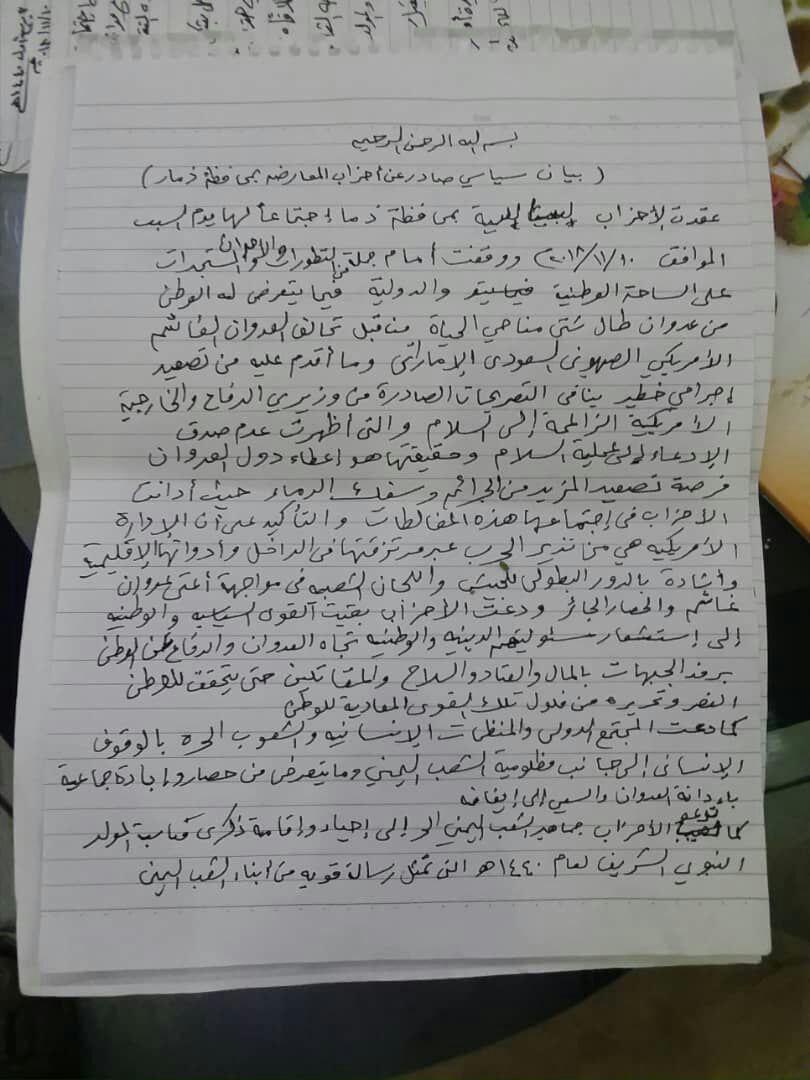 بسم الله الرحمن الرحيم
( بيان سياسي صادر عن أحزاب المعارضه بمحافظة ذمار )
عقدت الأحزاب السياسية بمحافظة ذمار إجتماعاً لها يوم السبت
الموافق ٢٠١٨/١١/١٠ ووقفت أمام جملة من التطورات والأحداث والمستجدات
على الساحة الوطنية والدولية فيما يتعرض له الوطن
من عدوان طال شتى مناحي الحياة من قبل تحالف العدوان الغاشم
الأمريكي الصهيوني السعودي الإماراتي وما أقدم عليه من تصعيد
إجرامي خطير ينافي التصريحات الصادرة من وزيري الدفاع والخارجية
الأمريكية الزاعمة إلى السلام والتي أظهرت عدم صدق
الإدعاء إلى عملية السلام وحقيقتها هو إعطاء دول العدوان
فرصة تصعيد المزيد من الجرائم وسفك الدماء حيث أدانت
الأحزاب في إجتماعها هذه المغالطات والتأكيد على أن الإدارة
الأمريكيه هي من تدير الحرب عبر مرتزقتها في الداخل وأدواتها الإقليمية
وأشادة بالدور البطولي للجيش واللجان الشعبيه في مواجهة أعتى عدوان
غاشم والحصار الجائر ودعت الأحزاب بقيت القوى السياسيه والوطنيه
إلى إستشعار مسئوليتهم الدينيه والوطنيه تجاه العدوان والدفاع عن الوطن
برفد الجبهات بالمال والعتاد والسلاح والمقاتلين حتى يتحقق للوطن
النصر وتحريره من فلول تلك القوى المعادية للوطن
كما دعت المجتمع الدولي والمنظمات الإنسانيه والشعوب الحره بالوقوف
الإنساني إلى جانب مظلومية الشعب اليمني وما يتعرض من حصار وإبادة جماعية
بإدانة العدوان والسعي إلى إيقافه
كما تدعو الأحزاب جماهير الشعب اليمني الحر إلى إحياء وإقامة ذكرى مناسبة المولد
النبوي الشريف لعام ١٤٤٠هـ التي تمثل رسالة قويه من أبناء الشعب اليمني